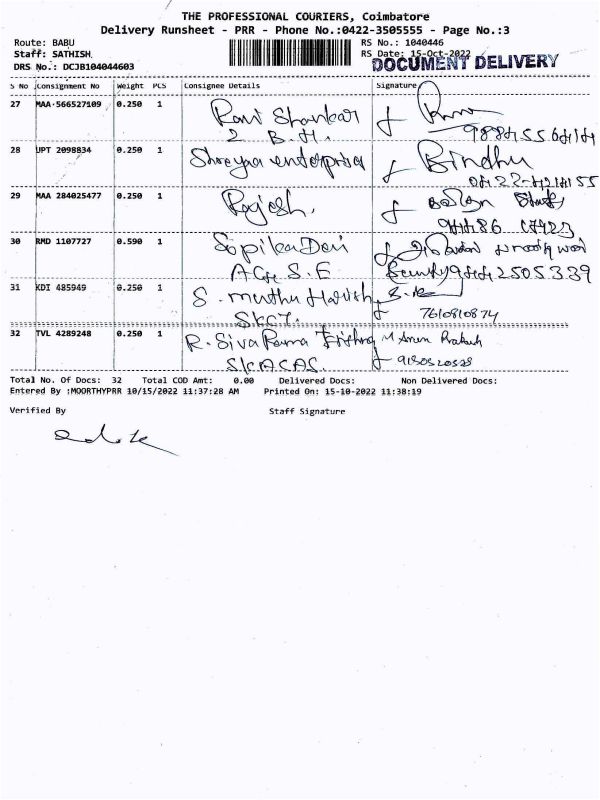 THE PROFESSIONAL COURIERS, Coimbatore
Delivery Runsheet - PRR - Phone No.:0422-3505555 - Page No.:3
Route: BABU
Staff: SATHISH
DRS No.: DCJB104044603
RS No.: 1040446
RS Date: 15-Oct-2022
DOCUMENT DELIVERY
S No Consignment No Weight PCS Consignee Details Signature
27 MAA 566527109 0.250 1 Ravi Shankar
2 B.H.
28 UPT 2098834 0.250 1 Shreyaa enterprise Bindhu
29 MAA 284025477 0.250 1 Rajesh.
30 RMD 1107727 0.590 1 Gopika Devi
Security
31 KDI 485949 0.250 1 S. muthu Harish
SKCT. 7610810874
32 TVL 4289248 0.250 1 R. Siva Rama M Arun Prakash
SKACAS.
Total No. Of Docs: 32 Total COD Amt: 0.00 Delivered Docs: Non Delivered Docs:
Entered By :MOORTHYPRR 10/15/2022 11:37:28 AM Printed On: 15-10-2022 11:38:19
Verified By Staff Signature